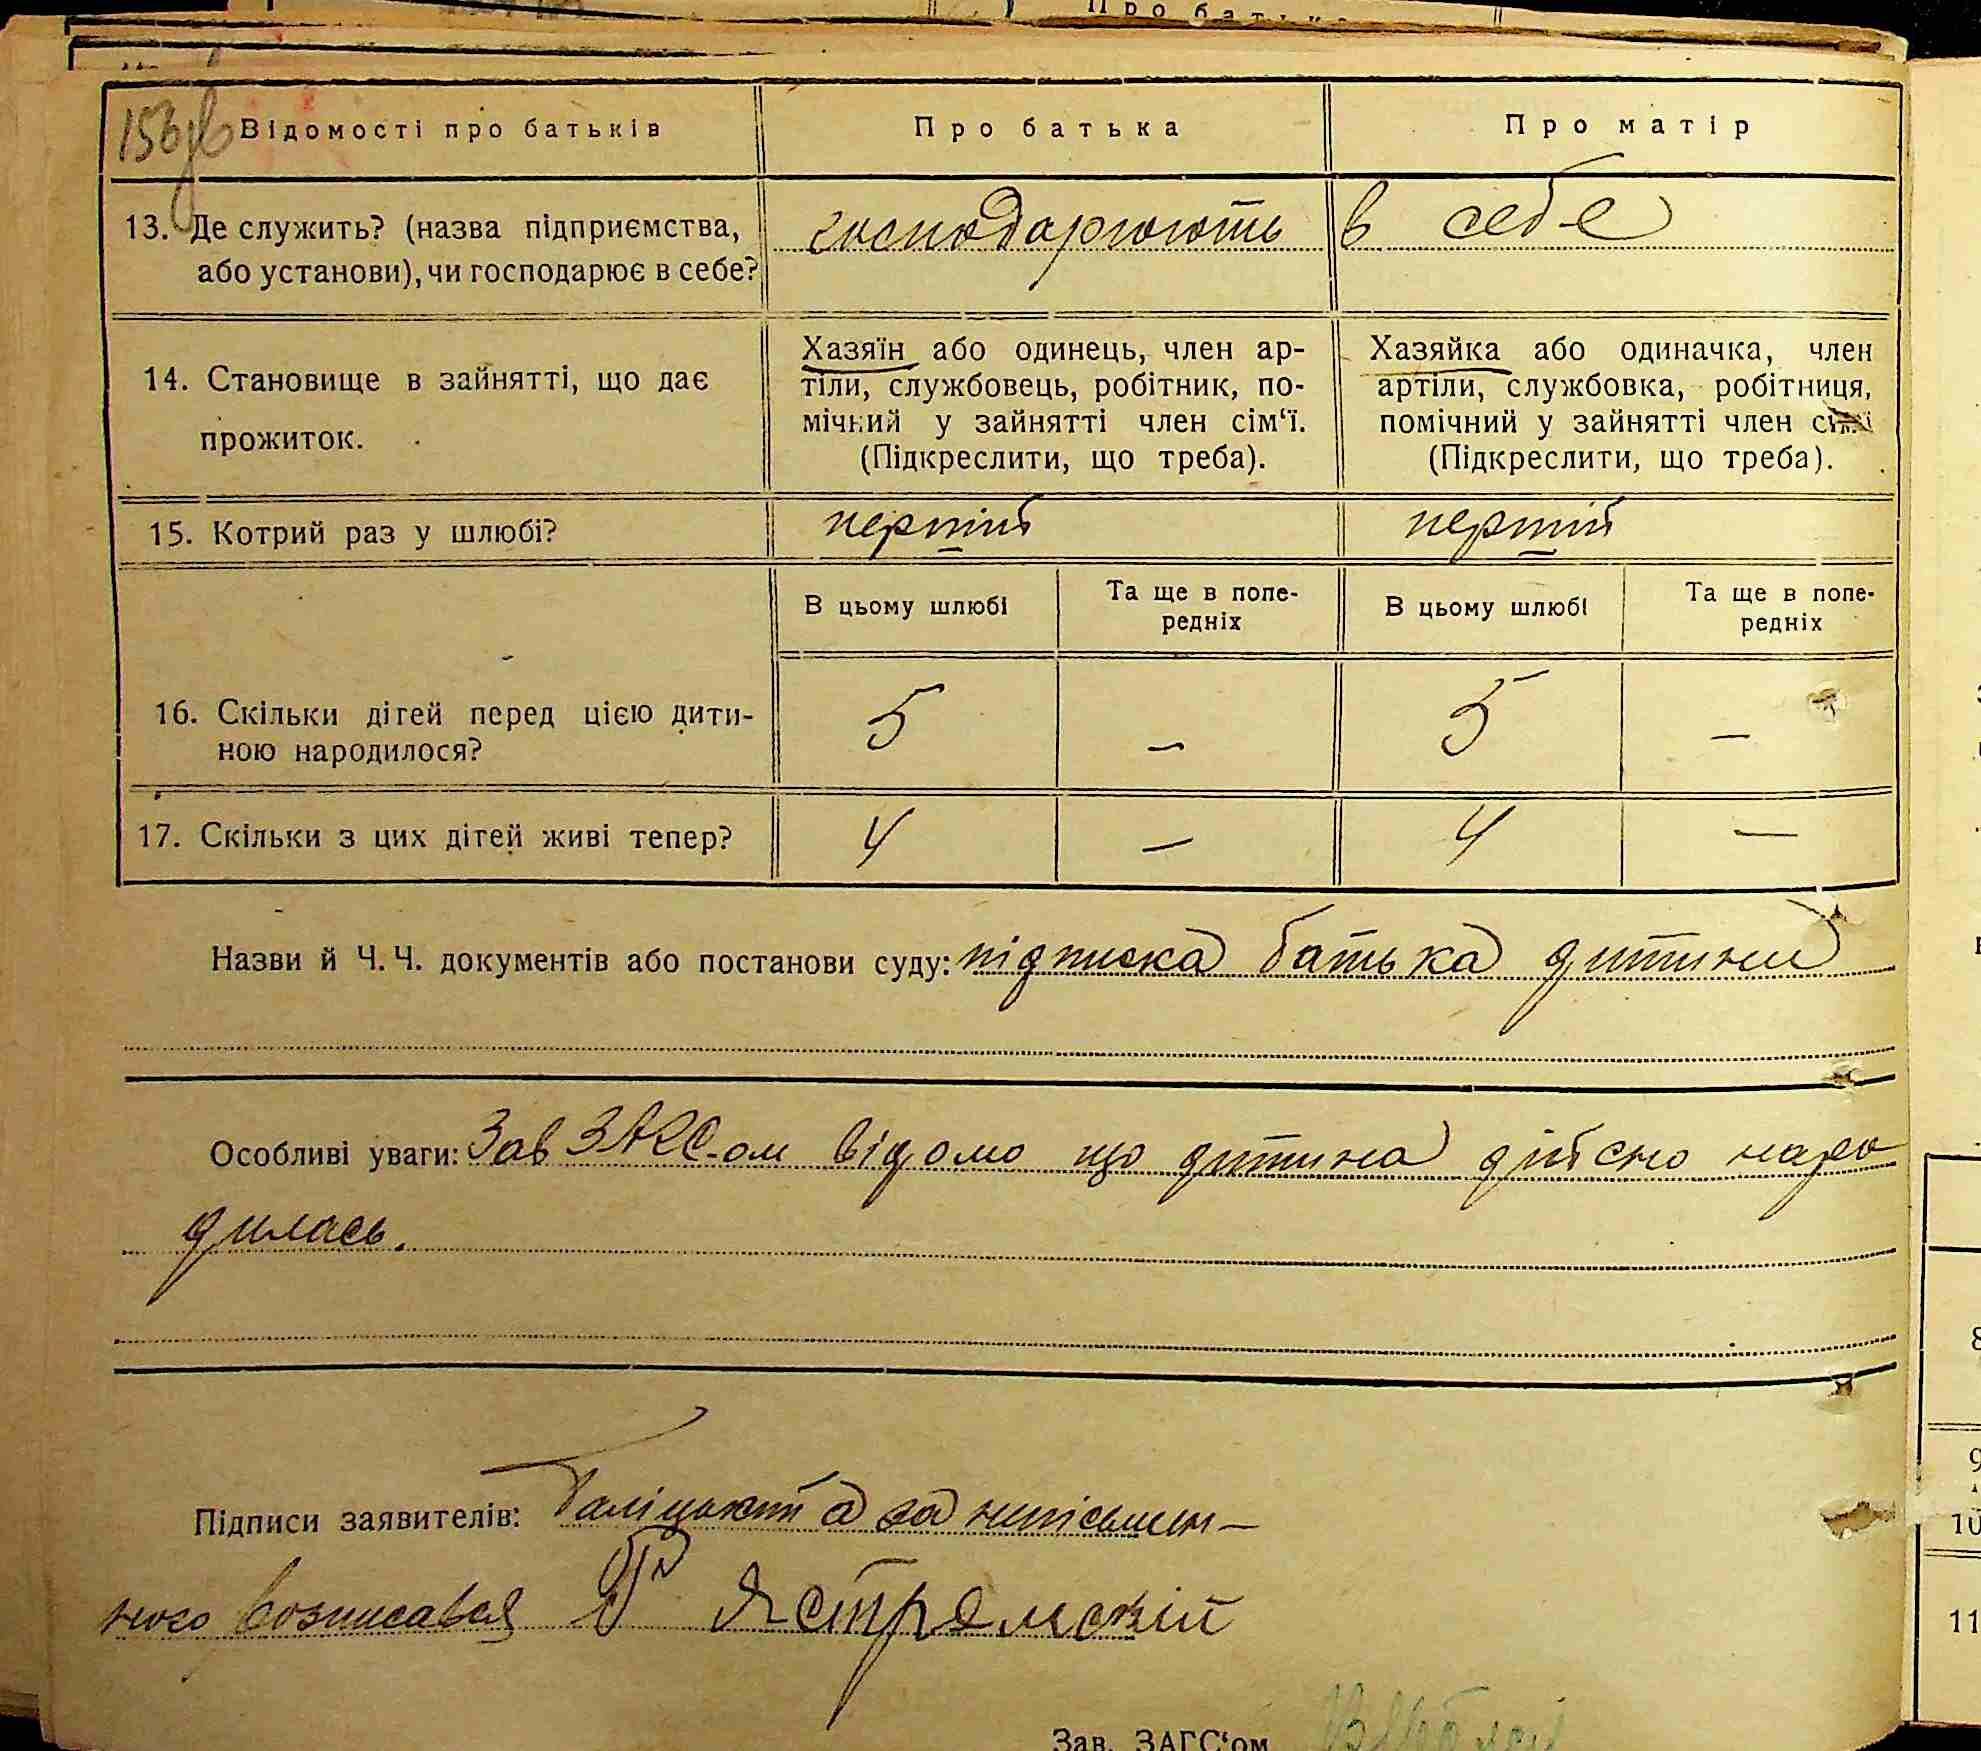 Про батька
156
Відомості про батьків
Про батька
Про матір
13. Де служить? (назва підприємства,
або установи), чи господарює в себе?
господарюють в себе
14. Становище в зайнятті, що дає
прожиток.
Хазяїн або одинець, член ар-
тіли, службовець, робітник, по-
мічний у зайнятті член сім‘ї.
(Підкреслити, що треба).
Хазяйка або одиначка, член
артіли, службовка, робітниця,
помічний у зайнятті член сім‘ї
(Підкреслити, що треба).
15. Котрий раз у шлюбі?
перший
перший
В цьому шлюбі
Та ще в попе-
редніх
В цьому шлюбі
Та ще в попе-
редніх
16. Скільки дітей перед цією дити-
ною народилося?
5
–
5
–
17. Скільки з цих дітей живі тепер?
4
–
4
–
Назви й Ч. Ч. документів або постанови суду: підписка батька дитини
Особливі уваги: Зав ЗАГС-ом відомо що дитина дійсно наро
дилась.
Підписи заявителів: Баліцький а за неписьмен-
ного розписався Ястремскій
Зав. ЗАГС‘ом
8
9
10
11